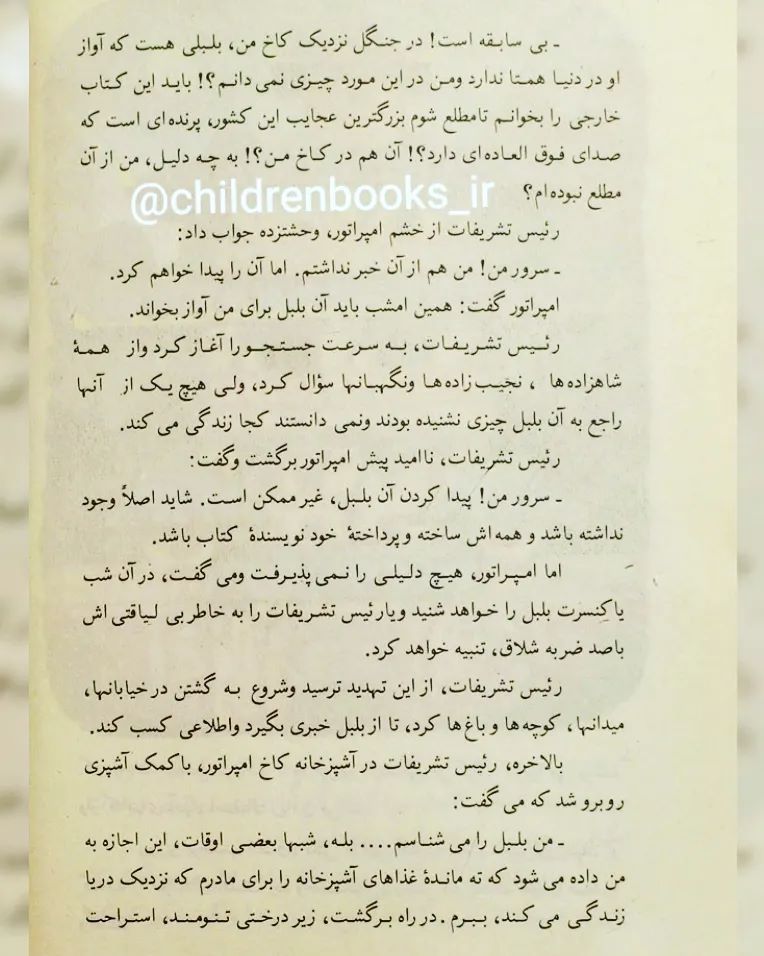 ـ بی سابقه است! در جنگل نزدیک کاخ من، بلبلی هست که آواز
او در دنیا همتا ندارد ومن در این مورد چیزی نمی دانم؟! باید این کتاب
خارجی را بخوانم تامطلع شوم بزرگترین عجایب این کشور، پرنده ای است که
صدای فوق العاده ای دارد؟! آن هم در کاخ من؟! به چه دلیل، من از آن
مطلع نبوده ام؟
@childrenbooks_ir
رئیس تشریفات از خشم امپراتور، وحشتزده جواب داد:
ـ سرور من! من هم از آن خبر نداشتم. اما آن را پیدا خواهم کرد.
امپراتور گفت: همین امشب باید آن بلبل برای من آواز بخواند.
رئیس تشریفات، به سرعت جستجو را آغاز کرد واز همۀ
شاهزاده ها ، نجیب زاده ها ونگهبانها سؤال کرد، ولی هیچ یک از آنها
راجع به آن بلبل چیزی نشنیده بودند ونمی دانستند کجا زندگی می کند.
رئیس تشریفات، ناامید پیش امپراتور برگشت وگفت:
ـ سرور من! پیدا کردن آن بلبل، غیر ممکن است. شاید اصلاً وجود
نداشته باشد و همه اش ساخته و پرداختۀ خود نویسندۀ کتاب باشد.
اما امپراتور، هیچ دلیلی را نمی پذیرفت ومی گفت، در آن شب
یا کنسرت بلبل را خواهد شنید ویا رئیس تشریفات را به خاطر بی لیاقتی اش
باصد ضربه شلاق، تنبیه خواهد کرد.
رئیس تشریفات، از این تهدید ترسید وشروع به گشتن در خیابانها،
میدانها، کوچه ها و باغ ها کرد، تا از بلبل خبری بگیرد واطلاعی کسب کند.
بالاخره، رئیس تشریفات در آشپزخانه کاخ امپراتور، با کمک آشپزی
روبرو شد که می گفت:
ـ من بلبل را می شناسم.... بله، شبها بعضی اوقات، این اجازه به
من داده می شود که ته ماندۀ غذاهای آشپزخانه را برای مادرم که نزدیک دریا
زندگی می کند، ببرم. در راه برگشت، زیر درختی تنومند، استراحت